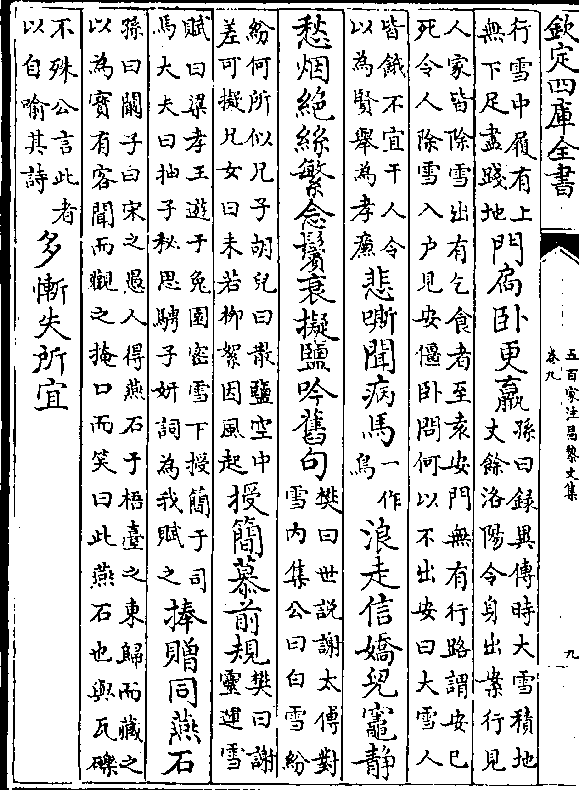 欽定四庫全書
五百家注昌黎文集
卷九
九
行雪中履有上
無下足盡踐地
門扃臥更羸
孫曰録異傳時大雪積地
丈餘洛陽令身出案行見
人家皆除雪出有乞食者至袁安門無有行路謂安已
死令人除雪入户見安僵臥問何以不出安曰大雪人
皆餓不宜干人令
以為賢舉為孝廉
悲嘶聞病馬
一作
鳥
浪走信嬌兒竈静
愁烟絶絲繁念鬢衰擬鹽吟舊句
樊曰世説謝太傅對
雪内集公曰白雪紛
紛何所似兄子胡兒曰散鹽空中
差可擬兄女曰未若柳絮因風起
授簡慕前規
樊曰謝
靈運雪
賦曰梁孝王遊于兔園密雪下授簡于司
馬大夫曰抽子秘思騁子妍詞為我賦之
捧贈同燕石
孫曰闞子曰宋之愚人得燕石于梧臺之東歸而藏之
以為寳有客聞而觀之掩口而笑曰此燕石也與瓦礫
不殊公言此者
以自喻其詩
多慚失所宜